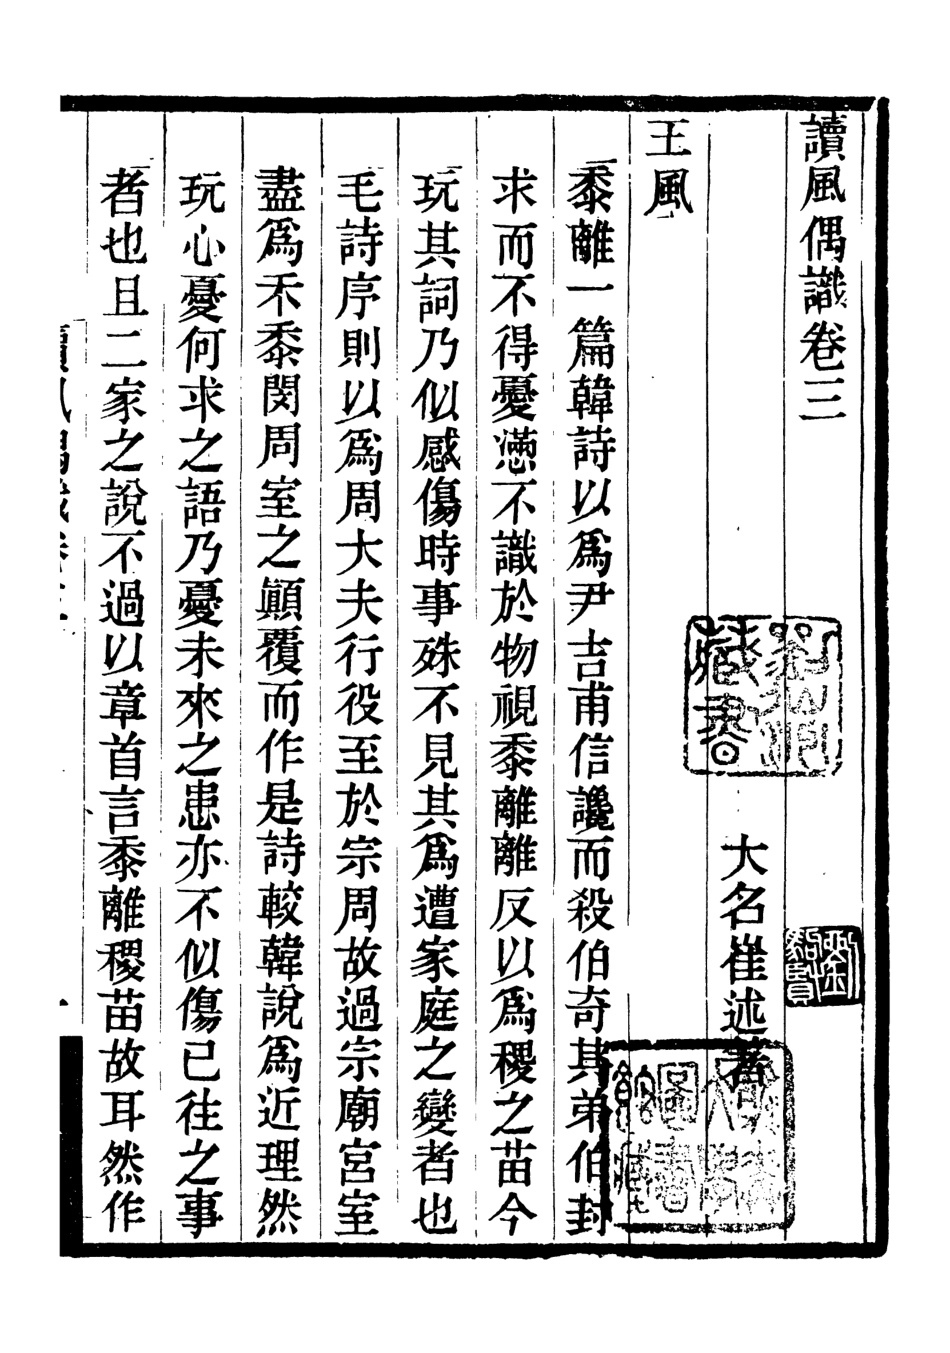 讀風偶識卷三
大名崔述著
王風
黍離一篇韓詩以爲尹吉甫信讒而殺伯奇其弟伯封
求而不得憂懣不識於物視黍離離反以爲稷之苗今
玩其詞乃似感傷時事殊不見其爲遭家庭之變者也
毛詩序則以爲周大夫行役至於宗周故過宗廟宮室
盡爲禾黍閔周室之顚覆而作是詩較韓說爲近理然
玩心憂何求之語乃憂未來之患亦不似傷已往之事
者也且二家之說不過以章首言黍離稷苗故耳然作